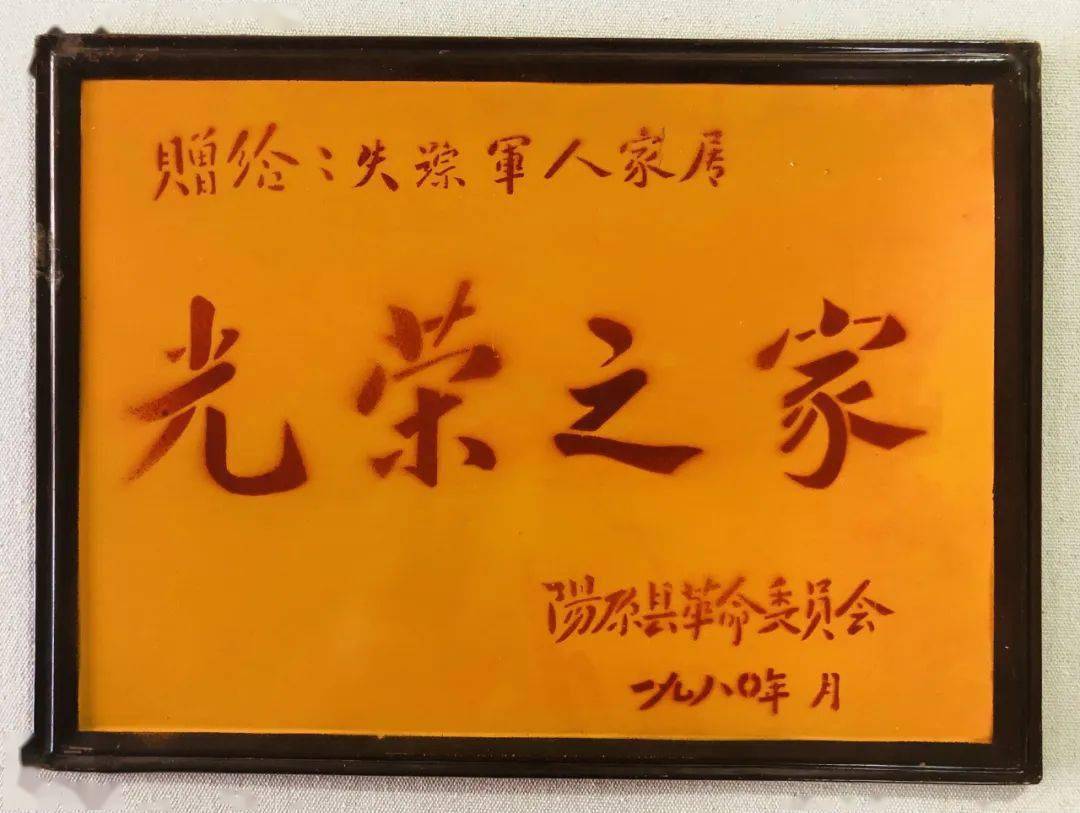 贈给：失踪軍人家居
光荣之家
陽原县革命委员会
一九八〇年 月